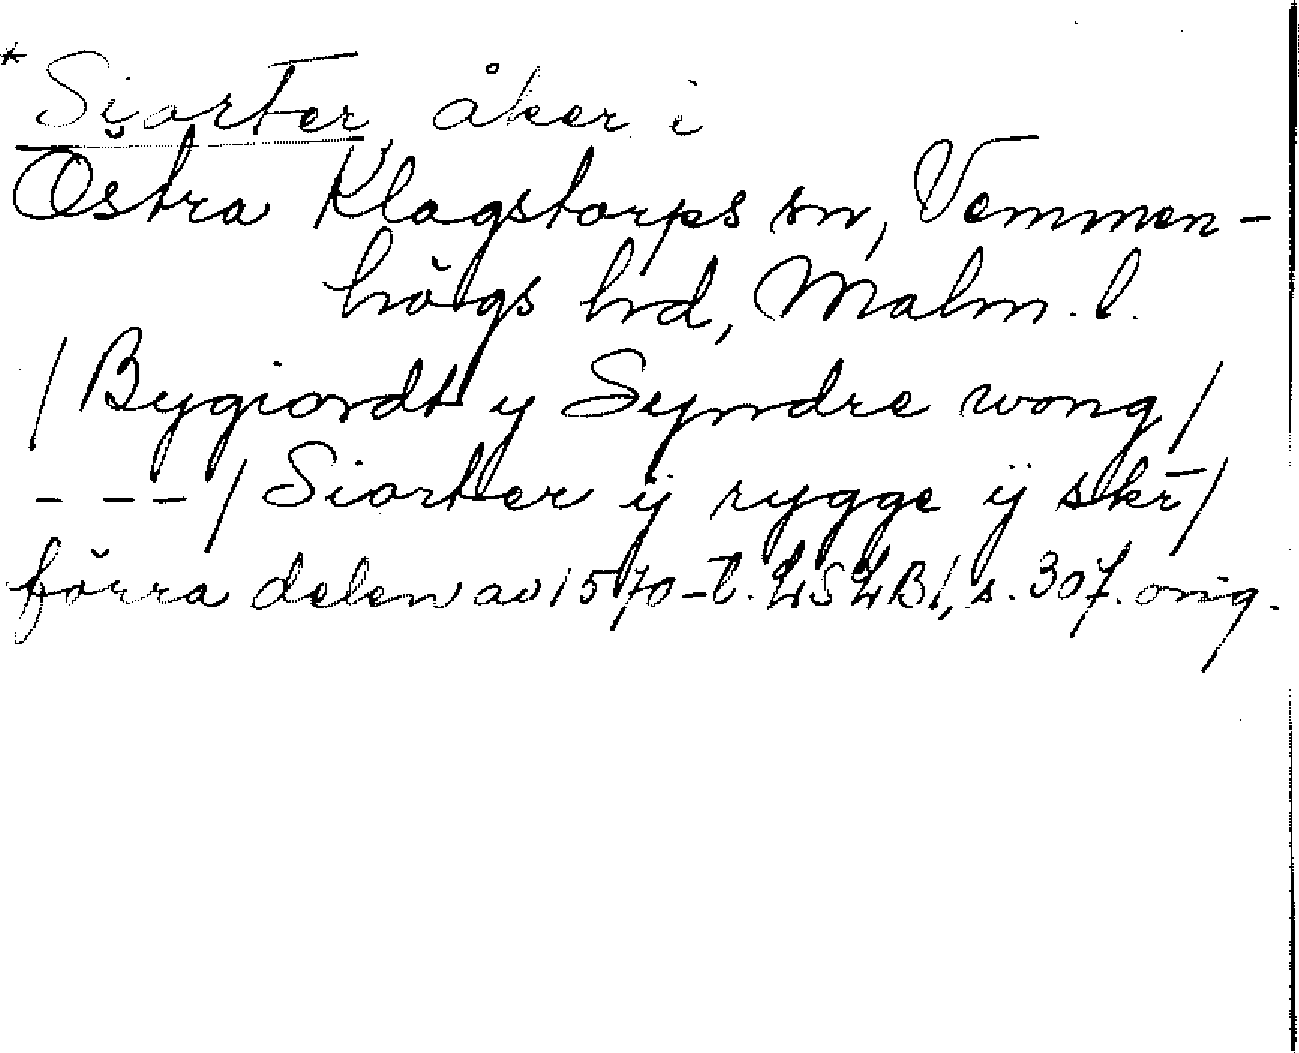 * Siorter, åker i
Östra Klagstorps sn, Vemmen-
högs hd, Malm. l.
/ Bygiordt y Syndre wong /
- - - / Siorter ÿ rygge ÿ skr̄ /
förra delen av 1570-t. LSLB1, s. 307. orig.